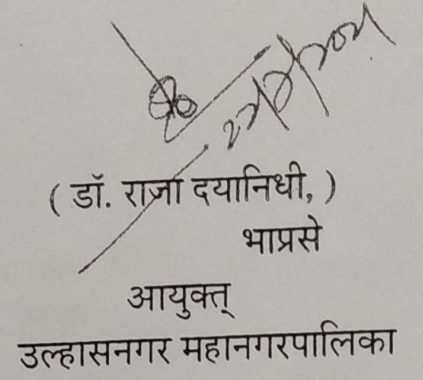 ( डॉ. राजा दयानिधी, )
भाप्रसे
आयुक्त्
उल्हासनगर महानगरपालिका